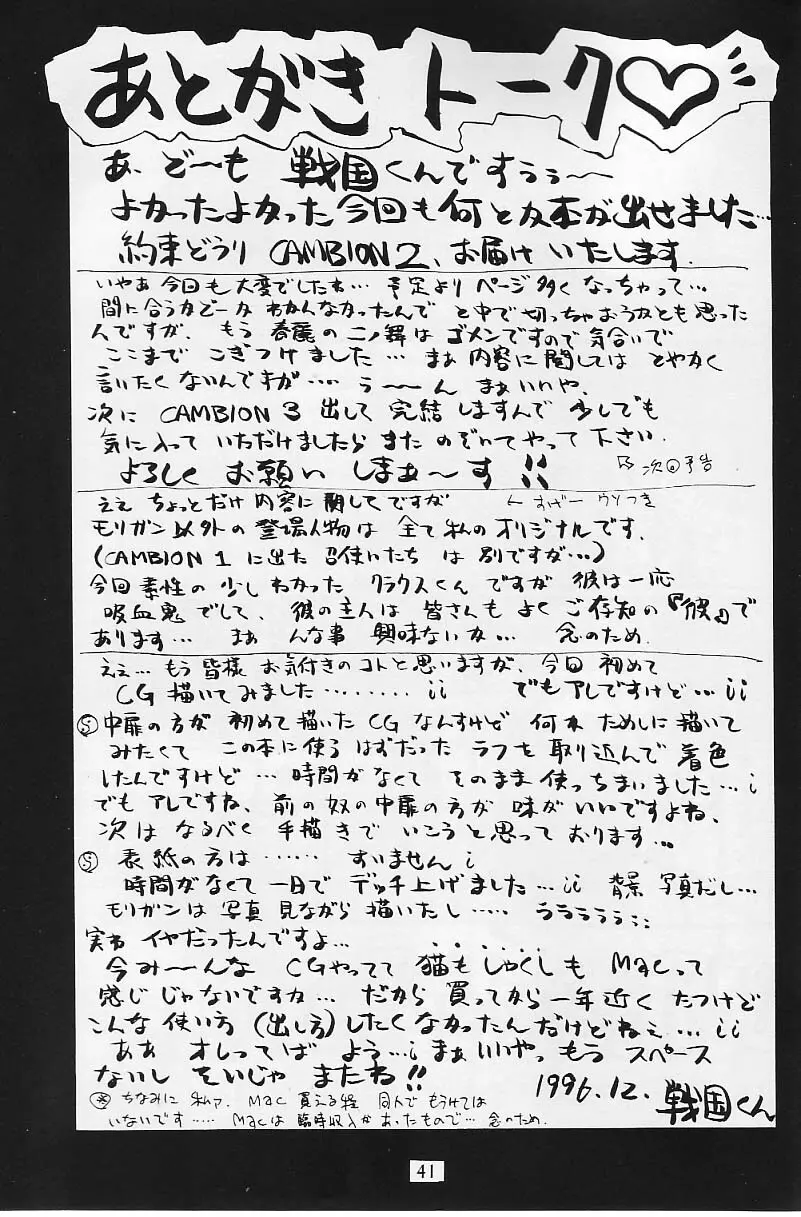 あとがきトーク♡
あ、ど〜も 戦国くんですぅぅ〜
よかったよかった今回も何とか本が出せました…
約束どうり CAMBION2、お届けいたします.
いやあ今回も大変でしたね… 予定よりページ多くなっちゃって…
間に合うかどーかわかんなかったんで と中で切っちゃおうかとも思った
んですが、もう春麗の二ノ舞はゴメンですので気合いで
ここまでこぎつけました… まぁ内容に関してはとやかく
言いたくないんですが…. う〜〜ん まぁいいや、
次に CAMBION 3 出して 完結しますんで 少しでも
気に入っていただけましたらまたのぞいてやって下さい.
よろしくお願いしまぁ〜す!! 次回予告
ええ ちょっとだけ内容に関してですが ← すげー ウソつき
モリガン以外の登場人物は 全て私のオリジナルです.
(CAMBION 1 に出た 召使いたち は 別ですが…)
今回素性の少しわかった クラウスくん ですが 彼は一応
吸血鬼でして、彼の主人は皆さんもよくご存知の『彼』で
あります… まぁ んな事 興味ないか… 念のため.
ええ… もう皆様お気付きのコトと思いますが、今回初めて
CG描いてみました……… ;; でもアレですけど…;;
Ⓢ中扉の方が 初めて描いた CG なんすけど 何れ ためしに描いて
みたくて この本に使うはずだった ラフを取り込んで 着色
したんですけど… 時間がなくて そのまま使っちまいました…;
でもアレですね、前の奴の中扉の方が味がいいですよね、
次は なるべく 手描きで いこうと思っております…
Ⓢ 表紙の方は…… すいません;
時間がなくて一日でデッチ上げました…;; 背景写真だし…
モリガンは写真見ながら描いたし….. うううううう;;
実わ イヤだったんですよ…
今み〜〜んな CGやってて 猫もしゃくしも Macって
感じじゃないですか… だから買ってから一年近くたつけど
こんな使い方(出し方)したくなかったんだけどねぇ…;;
ああ オレってば よう…; まぁいいやっ もう スペース
ないし そいじゃ またね!! 1996.12. 戦国くん
※ちなみに 私ァ、Mac 買える程 同人で もうけては
いないです….. Macは臨時収入があったもので… 念のため.
41